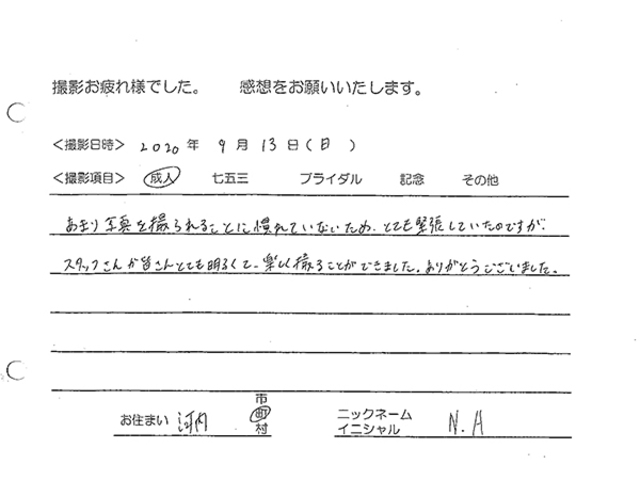 撮影お疲れ様でした。 感想をお願いいたします。
<撮影日時> 2020 年 9 月 13 日 ( 日 )
<撮影項目> 成人 七五三 ブライダル 記念 その他
あまり写真を撮られることに慣れていないため、とても緊張していたのですが、
スタッフさんが皆さんとても明るくて、楽しく撮ることができました。ありがとうございました。
お住まい 河内 市 町 村
ニックネーム イニシャル N.A